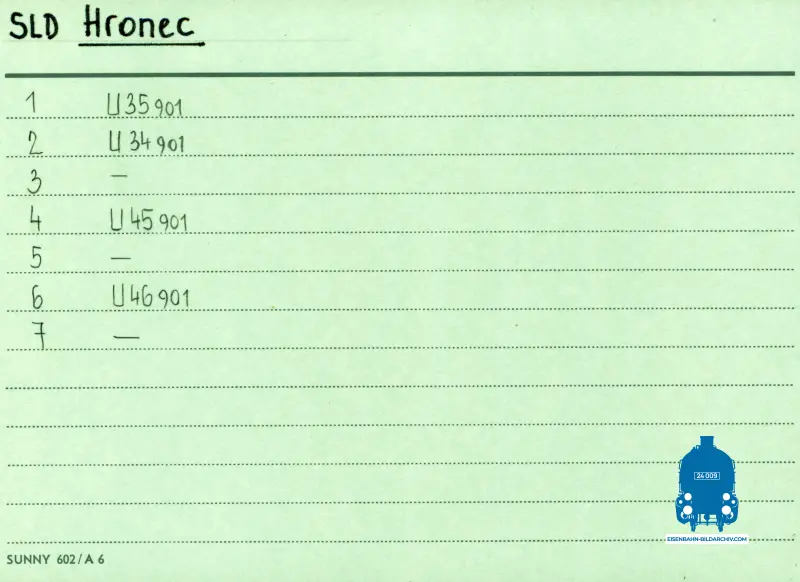 SLD Hronec
1 U35901
2 U34901
3 —
4 U45901
5 —
6 U46901
7 —
24 009
EISENBAHN-BILDARCHIV.COM
SUNNY 602/A 6